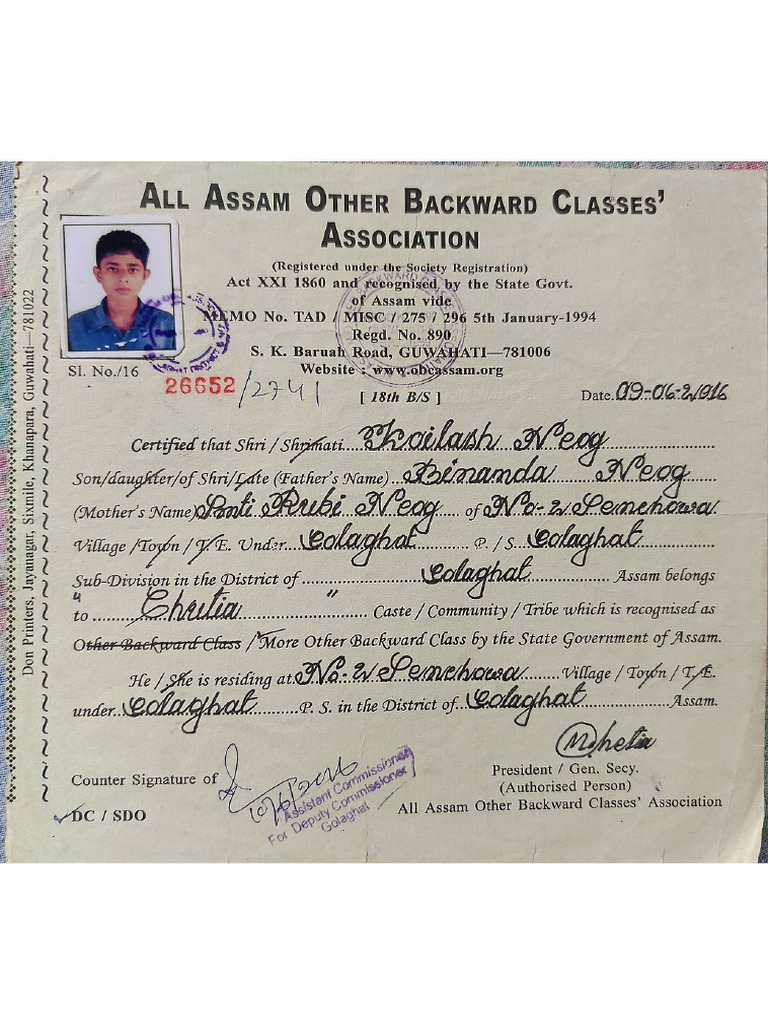 ALL ASSAM OTHER BACKWARD CLASSES'
ASSOCIATION
(Registered under the Society Registration)
Act XXI 1860 and recognised by the State Govt.
of Assam vide
MEMO No. TAD / MISC / 275 / 296 5th January-1994
Regd. No. 890
S. K. Baruah Road, GUWAHATI—781006
Website : www.obcassam.org
Sl. No./16
26652/2741
[ 18th B/S ]
Date. 09-06-2016
Certified that Shri / Shrimati Kailash Neog
Son/daughter/of Shri/Late (Father's Name) Binanda Neog
(Mother's Name) Smti Rubi Neog of No-2 Senchowa
Village /Town / T.E. Under Golaghat P. / S. Golaghat
Sub-Division in the District of Golaghat Assam belongs
" to Chutia " Caste / Community / Tribe which is recognised as
Other Backward Class / More Other Backward Class by the State Government of Assam.
He / She is residing at No-2 Senchowa Village / Town / T.E.
under Golaghat P. S. in the District of Golaghat Assam.
Counter Signature of
DC / SDO
Assistant Commissioner
For Deputy Commissioner
Golaghat
President / Gen. Secy.
(Authorised Person)
All Assam Other Backward Classes' Association
Don Printers, Jayanagar, Sixmile, Khanapara, Guwahati—781022